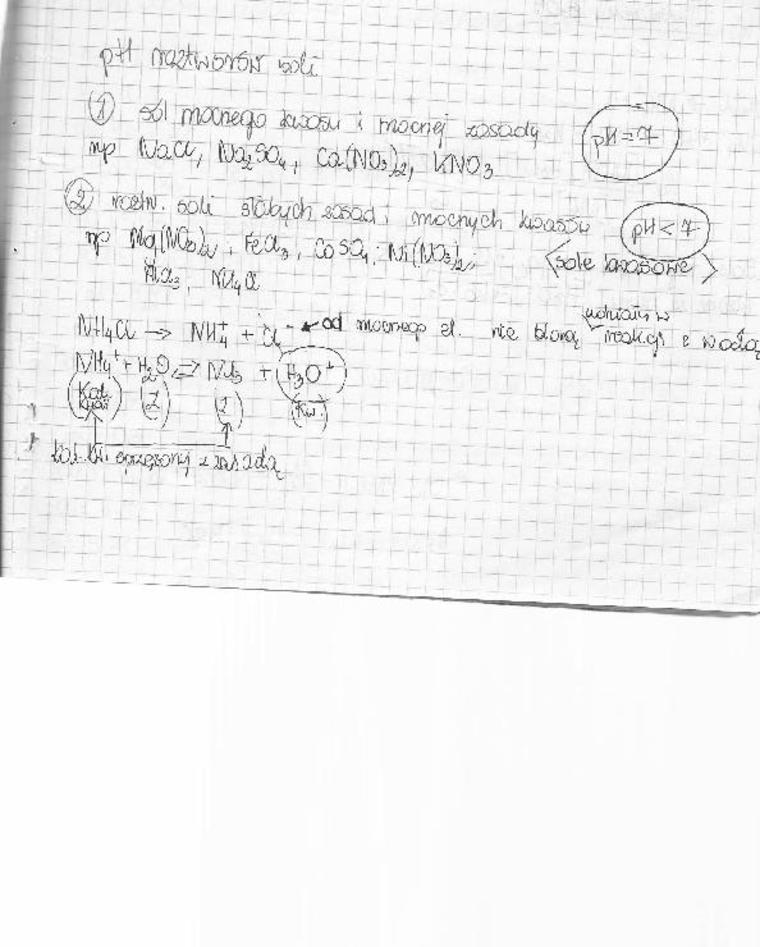 pH roztworów soli
① sól mocnego kwasu i mocnej zasady pH = 7
np NaCl, Na₂SO₄, Ca(NO₃)₂, KNO₃
② roztw. soli słabych zasad i mocnych kwasów pH < 7
np Mg(NO₃)₂, FeCl₃, CoSO₄, Ni(NO₃)₂, <sole kwasowe>
AlCl₃, NH₄Cl
udziału w
NH₄Cl → NH₄⁺ + Cl⁻ ← od mocnego el. nie biorą reakcji z wodą
NH₄⁺ + H₂O ⇌ NH₃ + H₃O⁺
(Kat. kwas) (Z) (Z) (Kw.)
sprzężony z zasadą